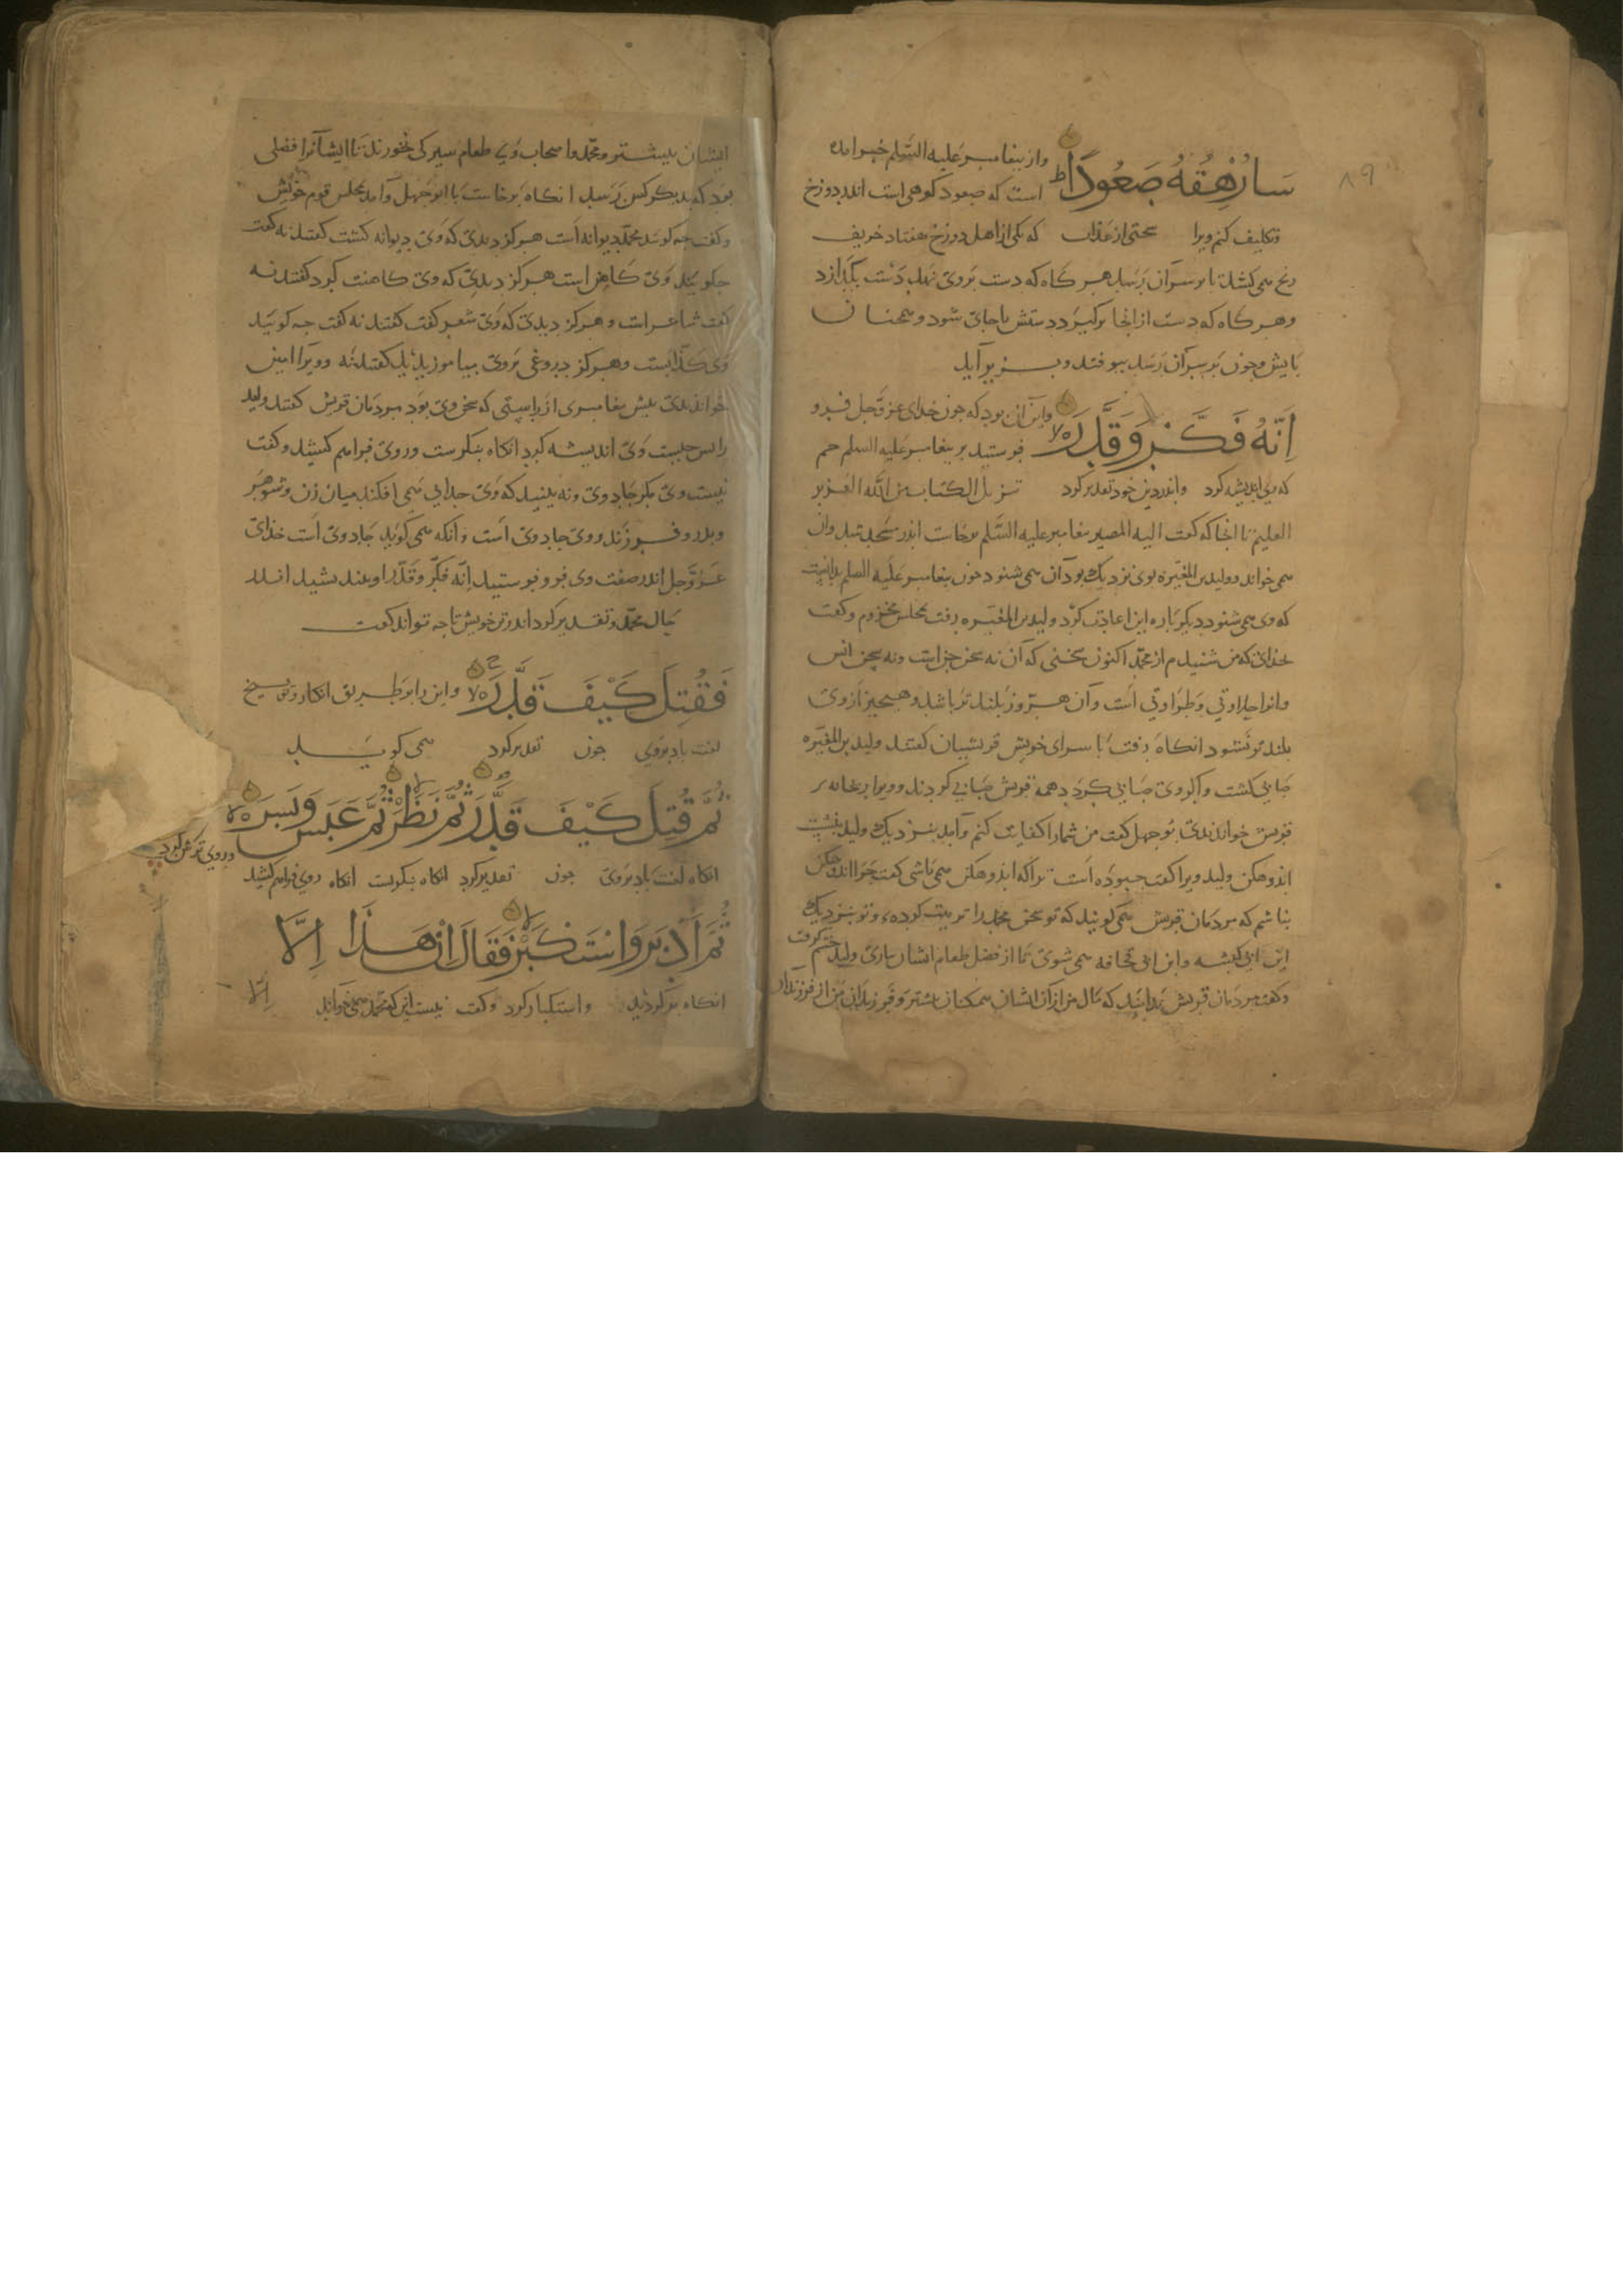 ۸۹
سَاُرْهِقُهُ صَعُودًا ط واز بیغامبر علیه السّلم خبر آمده
است که صعود کوهی است اندر دوزخ
وتکلیف کنم ویرا سختی از عذاب که یکی از اهل دوزخ هفتاد خریف
رنج همی کشد تا بر سر آن رسد هر کاه که دست بر وی نهد دست بگدازد
وهر کاه که دست از انجا برکیرد دستش باجای شود و همچنان
بایش وجون بر سر آن رسد بیوفتد و بزیر آید
اِنَّهُ فَكَّرَ وَقَدَّرَ لا واین آن بود که جون خدای عزّ وجل فرو
فرستید بر بیغامبر علیه السلم حم
که وی اندیشه کرد واندر دین خود تقدیر کرد تنزیل الکتاب من الله العزیز
العلیم تا انجا که کفت الیه المصیر بیغامبر علیه السّلم برخاست اندر مسجد شد وان
همی خواند وولید بن المغیره بوی نزدیک بود آن همی شنود جون بیغامبر علیه السلم بدانست
که وی همی شنود دیکر باره این اعادت کرد ولید بن المغیره برفت بمجلس مخزوم وکفت
بخدای که من شنیدم از محمّد اکنون سخنی که آن نه سخن جن است ونه سخن انس
وانرا حلاوتی وطراوتی است وآن هر روز بلندتر باشد وهیجیز از وی
بلندتر نشود انکاه برفت با سرای خویش قریشیان کفتند ولید بن المغیره
صابی کشت واکر وی صابی کردد همه قریش صابی کردند وویرا ریحانه
قریش خواندندی بوجهل کفت من شما را کفایت کنم وآمد بنزدیک ولید بنشست
اندوهکن ولید ویرا کفت جبوده است ترا که اندوهکن همی باشی کفت جرا اندوهکن
نباشم که مردمان قریش همی کویند که تو سخن محمّد را تربیت کرده‌ء وتو بنزدیک
ابن ابی کبشه وابن ابی قحافه همی شوی تا از فضل طعام ایشان بیاری ولید خشم کرفت
وکفت مردمان قریش بدانند که مال من از آن ایشان همکنان بیشتر وفرزندان من از فرزندان
ایشان بیشتر ومحمّد واصحاب وی طعام سیر کی بخورند تا ایشانرا فضلی
بود که بدیکر کس رسد انکاه برخاست با ابوجهل وآمد بمجلس قوم خویش
وکفت جه کویند محمّد دیوانه است هرکز دیدی که وی دیوانه کشت کفتند نه کفت
جکویند وی کاهن است هرکز دیدی که وی کاهنت کرد کفتند نه
کفت شاعر است وهرکز دیدی که وی شعر کفت کفتند نه کفت جه کویید
وی کذّابست وهرکز دروغی بر وی بیاموزیدید کفتند نه وویرا امین
خواندندی بیش بیغامبری از راستی که سخن وی بود مردمان قریش کفتند ولید
را بس جیست وی اندیشه کرد انکاه بنکرست وروی فراهم کشید وکفت
نیست وی مکر جادوی ونه بینید که وی جدایی همی افکند میان زن وشوهر
وبدر وفرزند ووی جادوی است وانکه همی کوید جادوی است خدای
عزّ وجل اندر صفت وی فرو فرستید اِنّه فکّر وقدّر او بیندیشید اندر
حال محمّد وتقدیر کرد اندر تن خویش تا جه تواند کفت
فَقُتِلَ كَيْفَ قَدَّرَ لا واین را بر طریق انکار وتوبیخ
لعنت باد بر وی جون تقدیر کرد همی کوید
ثُمَّ قُتِلَ كَيْفَ قَدَّرَ ثُمَّ نَظَرَ ثُمَّ عَبَسَ وَبَسَرَ لا
انکاه لعنت باد بر وی جون تقدیر کرد انکاه بنکرست انکاه روی فراهم کشید وروی ترش کرد
ثُمَّ اَدْبَرَ وَاسْتَكْبَرَ فَقَالَ اِنْ هَذَا اِلَّا
انکاه برکردید واستکبار کرد وکفت نیست این که محمّد همی خواند
اِلّا